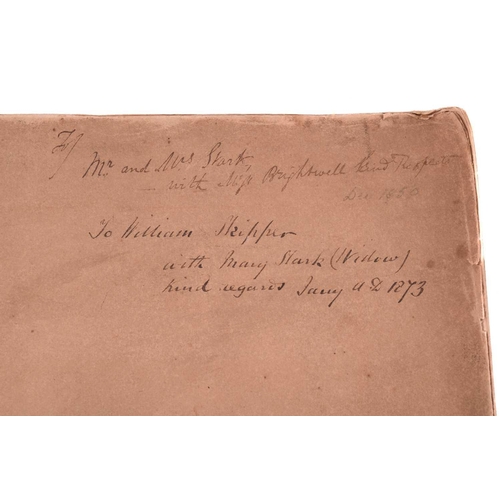 Mr and Mrs Stark
with Miss Brightwell kind Respects
Dec 1858
To William Skipper
with Mary Stark (Widow)
kind regards Jany AD 1873